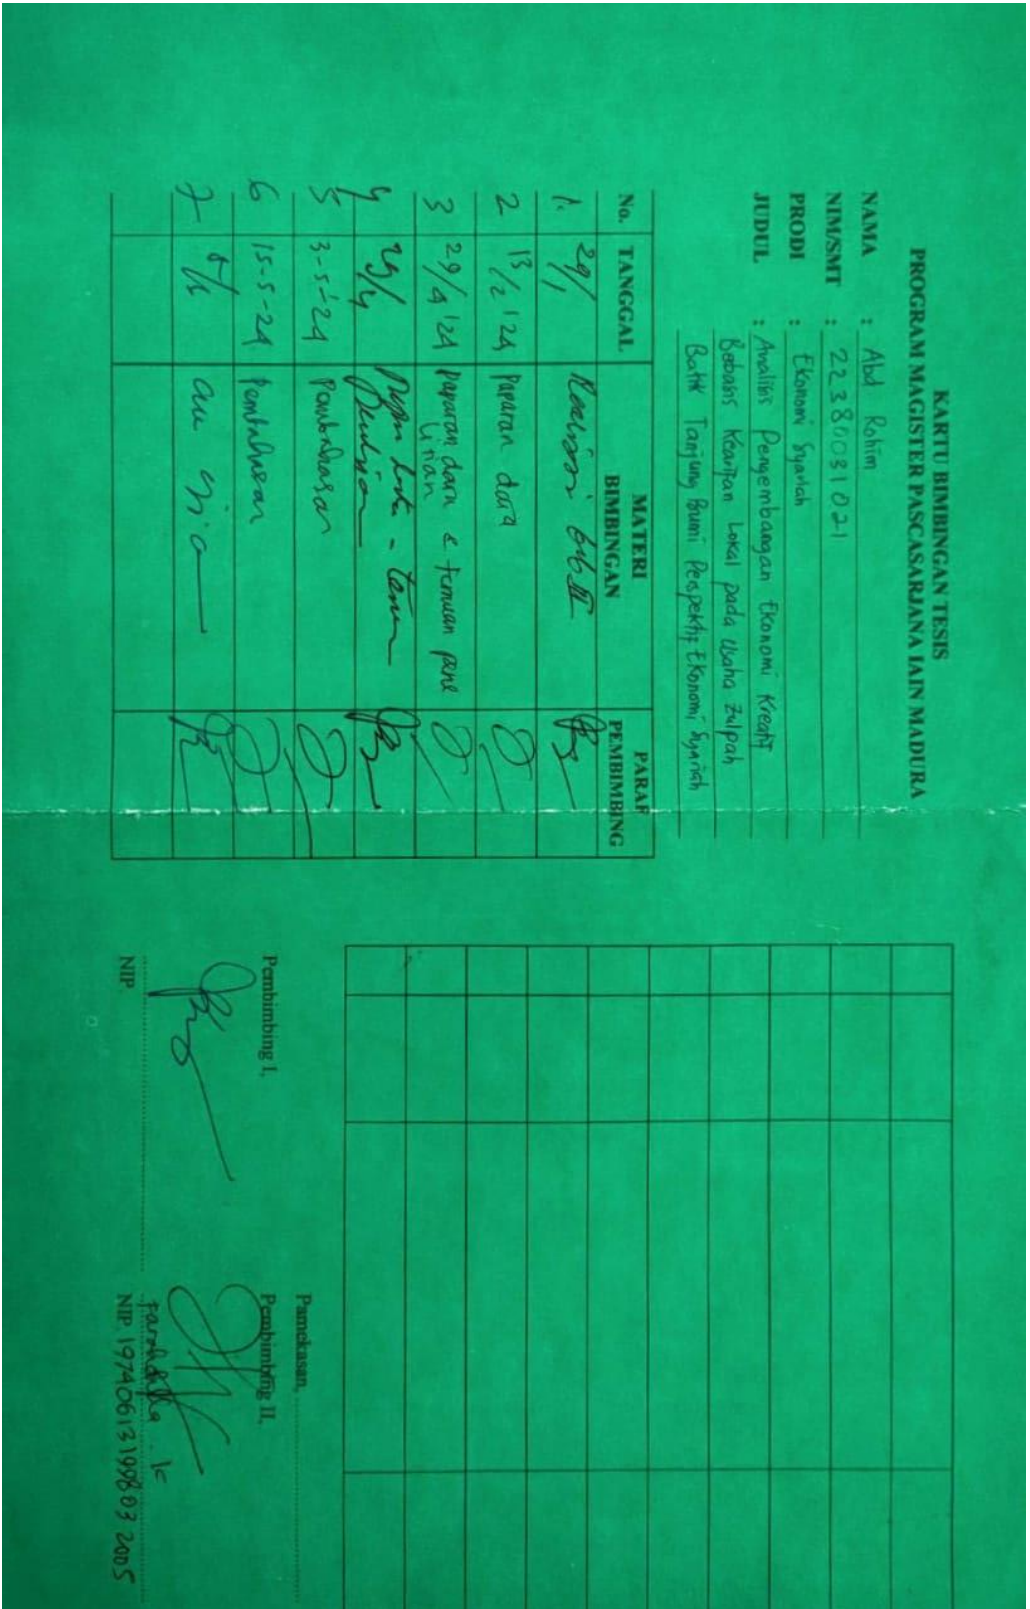 KARTU BIMBINGAN TESIS
PROGRAM MAGISTER PASCASARJANA IAIN MADURA
NAMA : Abd Rohim
NIM/SMT : 22380031021
PRODI : Ekonomi Syariah
JUDUL : Analisis Pengembangan Ekonomi Kreatif
Bebasis Kearifan Lokal pada Usaha Zulpah
Batik Tanjung Bumi Perspektif Ekonomi Syariah
No. TANGGAL MATERI BIMBINGAN PARAF PEMBIMBING
1. 29/1 bab II
2 13/2 '24 Paparan data
3 29/4 '24 Paparan data & temuan pene
litian
4
5 3-5-'24 Pembahasan
6 15-5-24 Pembahasan
7
Pamekasan,
Pembimbing I,
Pembimbing II,
NIP.
NIP. 197406131998032005